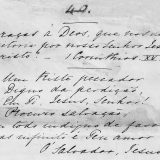 42.
raças á Deos, que nos
atoria por nosso Senhor Jesu
risto! — I Corinthios. XV.
Um triste peccador
Digno da perdição,
Eis-me, Jesus, Senhor!
Procuro salvação,
infinito é Teu amor
O Salvador, Jesus